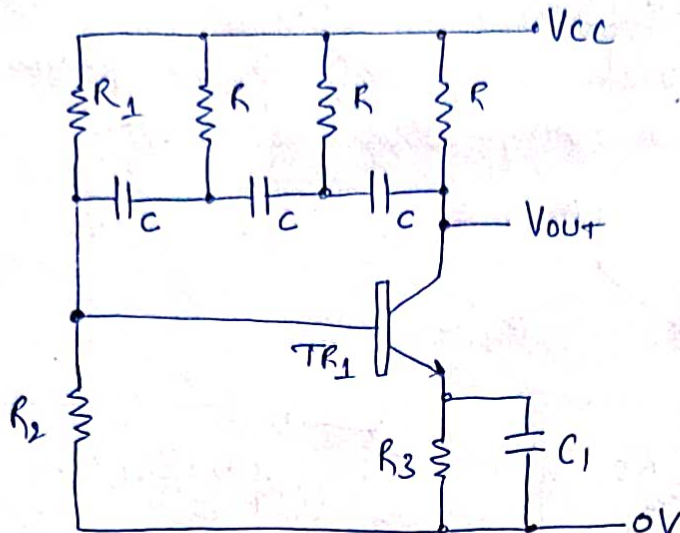 VCC
R1
R
R
R
C
C
C
VOUT
TR1
R2
R3
C1
0V